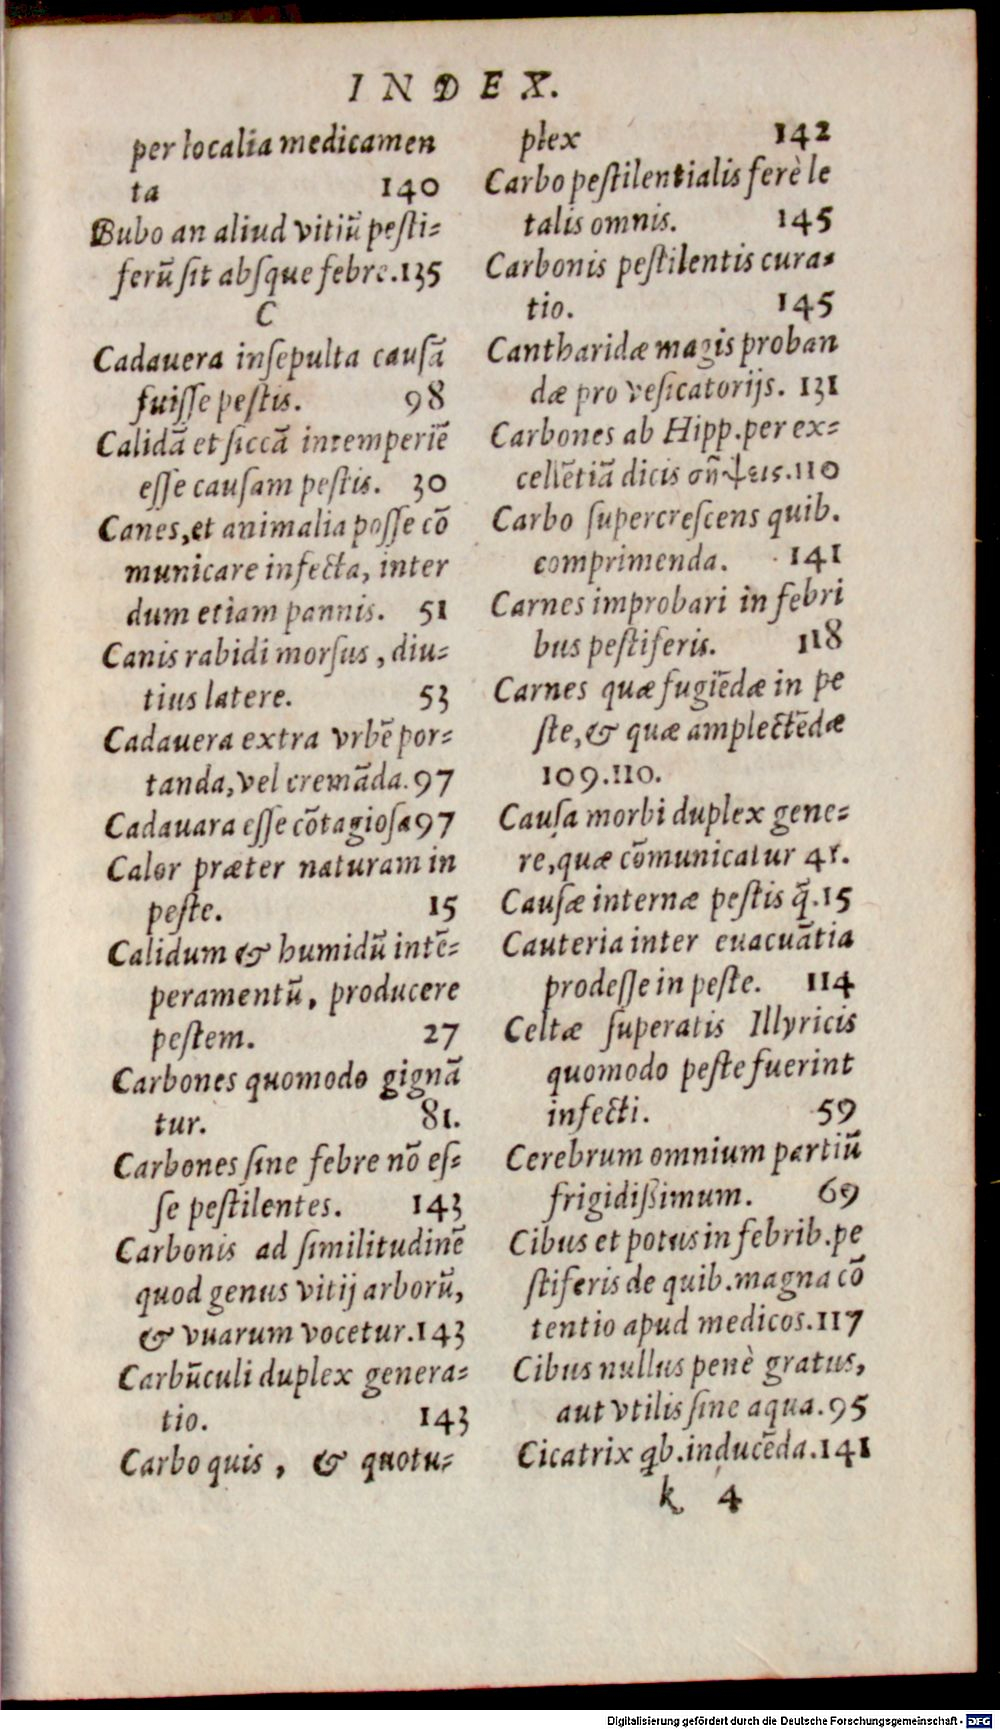 INDEX.
per localia medicamen
ta 140
Bubo an aliud vitiũ pesti=
ferũ sit absque febre.135
C
Cadauera insepulta causã
fuisse pestis. 98
Calidã et siccã intemperiẽ
esse causam pestis. 30
Canes,et animalia posse cõ
municare infecta, inter
dum etiam pannis. 51
Canis rabidi morsus, diu=
tius latere. 53
Cadauera extra vrbẽ por=
tanda,vel cremãda.97
Cadauara esse cõtagiosa 97
Calor præter naturam in
peste. 15
Calidum & humidũ intẽ=
peramentũ, producere
pestem. 27
Carbones quomodo gignã
tur. 81.
Carbones sine febre nõ es=
se pestilentes. 143
Carbonis ad similitudinẽ
quod genus vitij arborũ,
& vuarum vocetur.143
Carbũculi duplex genera=
tio. 143
Carbo quis, & quotu=
plex 142
Carbo pestilentialis ferè le
talis omnis. 145
Carbonis pestilentis cura=
tio. 145
Cantharidæ magis proban
dæ pro vesicatorijs. 131
Carbones ab Hipp.per ex=
cellẽtiã dicis σῆψεις.110
Carbo supercrescens quib.
comprimenda. 141
Carnes improbari in febri
bus pestiferis. 118
Carnes quæ fugiẽdæ in pe
ste,& quæ amplectẽdæ
109.110.
Causa morbi duplex gene=
re,quæ cõmunicatur 41.
Causæ internæ pestis q̃.15
Cauteria inter euacuãtia
prodesse in peste. 114
Celtæ superatis Illyricis
quomodo peste fuerint
infecti. 59
Cerebrum omnium partiũ
frigidißimum. 69
Cibus et potus in febrib.pe
stiferis de quib.magna cõ
tentio apud medicos.117
Cibus nullus penè gratus,
aut vtilis sine aqua.95
Cicatrix qb.inducẽda.141
k 4
Digitalisierung gefördert durch die Deutsche Forschungsgemeinschaft - DFG